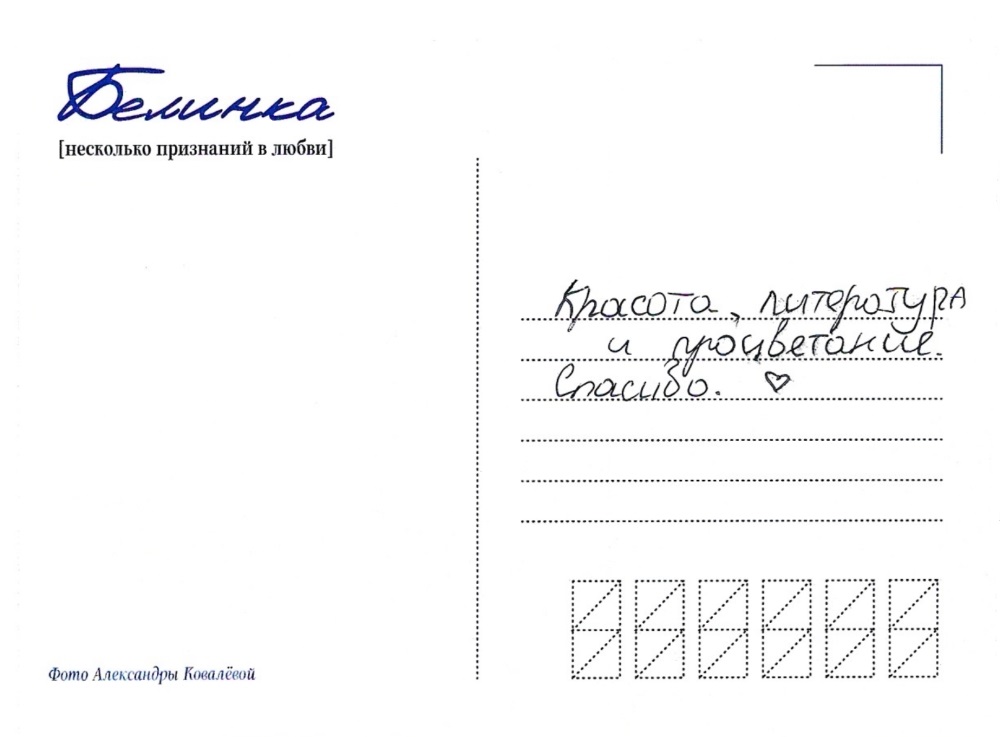 Белинка
[несколько признаний в любви]
Красота, литература
и процветание.
Спасибо. ♡
Фото Александры Ковалёвой